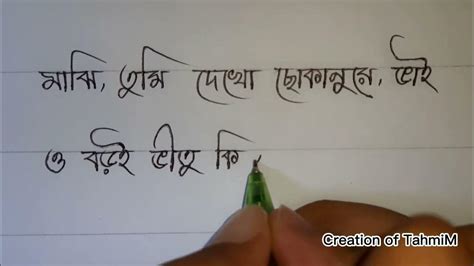 মাঝি, তুমি দেখো ছোকানুরে, ভাই
ও বড়ই ভীতু কি
Creation of TahmiM